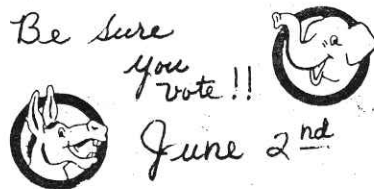 Be sure
you
vote!!
June 2nd